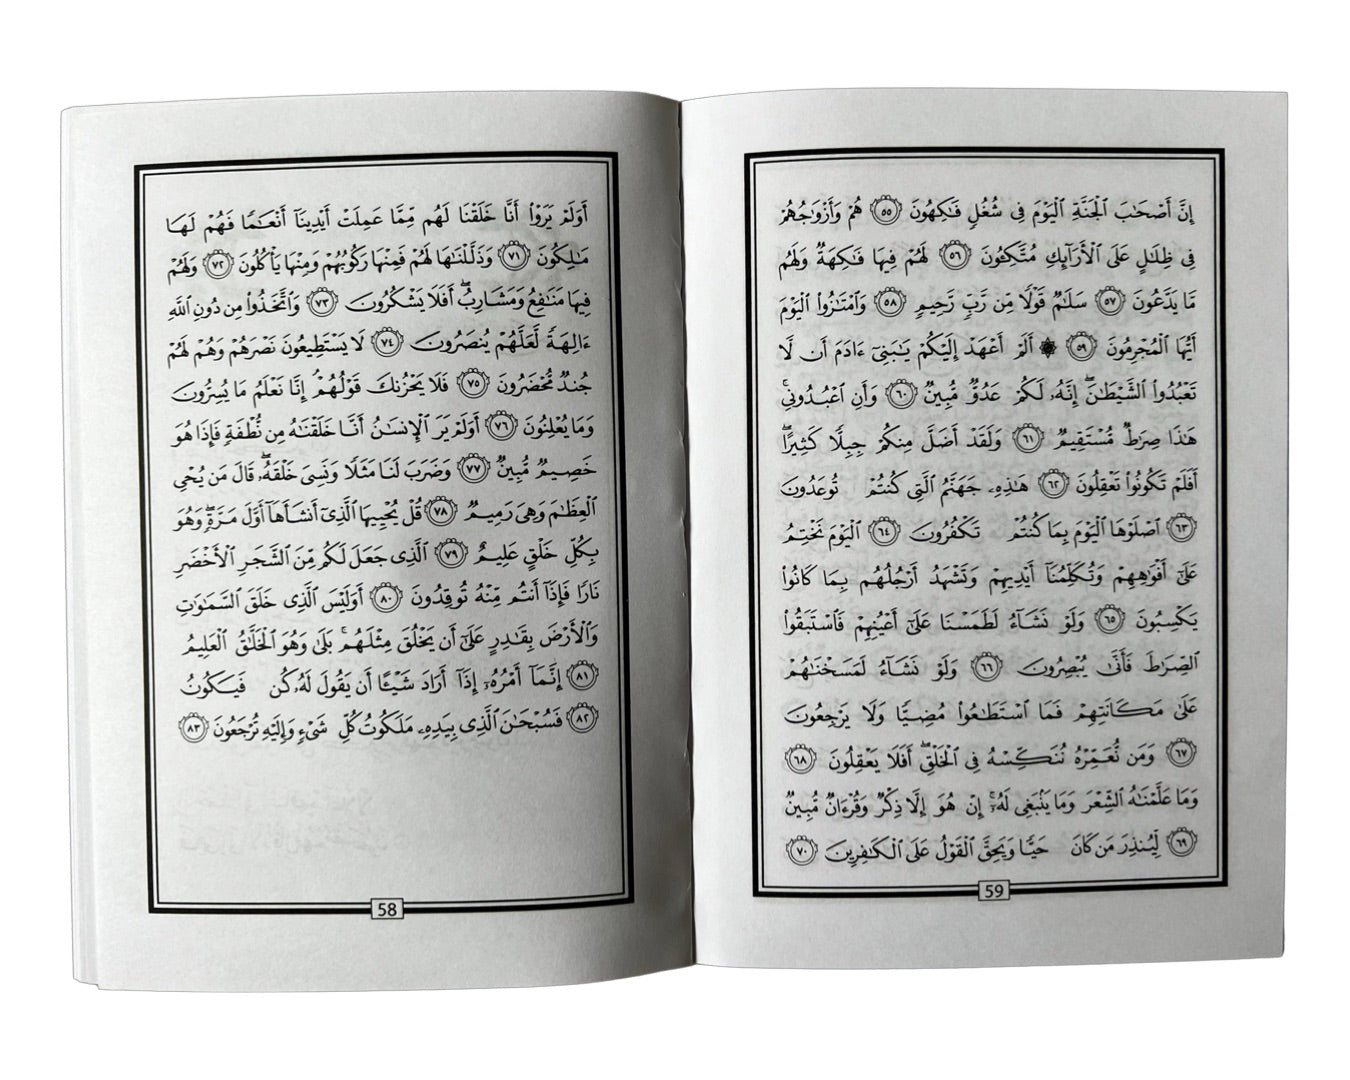 إِنَّ أَصْحَٰبَ ٱلْجَنَّةِ ٱلْيَوْمَ فِى شُغُلٍ فَٰكِهُونَ ٥٥ هُمْ وَأَزْوَٰجُهُمْ
فِى ظِلَٰلٍ عَلَى ٱلْأَرَآئِكِ مُتَّكِـُٔونَ ٥٦ لَهُمْ فِيهَا فَٰكِهَةٌ وَلَهُم
مَّا يَدَّعُونَ ٥٧ سَلَٰمٌ قَوْلًا مِّن رَّبٍّ رَّحِيمٍ ٥٨ وَٱمْتَٰزُوا۟ ٱلْيَوْمَ
أَيُّهَا ٱلْمُجْرِمُونَ ٥٩ ۞ أَلَمْ أَعْهَدْ إِلَيْكُمْ يَٰبَنِىٓ ءَادَمَ أَن لَّا
تَعْبُدُوا۟ ٱلشَّيْطَٰنَ ۖ إِنَّهُۥ لَكُمْ عَدُوٌّ مُّبِينٌ ٦٠ وَأَنِ ٱعْبُدُونِى ۚ
هَٰذَا صِرَٰطٌ مُّسْتَقِيمٌ ٦١ وَلَقَدْ أَضَلَّ مِنكُمْ جِبِلًّا كَثِيرًا ۖ
أَفَلَمْ تَكُونُوا۟ تَعْقِلُونَ ٦٢ هَٰذِهِۦ جَهَنَّمُ ٱلَّتِى كُنتُمْ تُوعَدُونَ
٦٣ ٱصْلَوْهَا ٱلْيَوْمَ بِمَا كُنتُمْ تَكْفُرُونَ ٦٤ ٱلْيَوْمَ نَخْتِمُ
عَلَىٰٓ أَفْوَٰهِهِمْ وَتُكَلِّمُنَآ أَيْدِيهِمْ وَتَشْهَدُ أَرْجُلُهُم بِمَا كَانُوا۟
يَكْسِبُونَ ٦٥ وَلَوْ نَشَآءُ لَطَمَسْنَا عَلَىٰٓ أَعْيُنِهِمْ فَٱسْتَبَقُوا۟
ٱلصِّرَٰطَ فَأَنَّىٰ يُبْصِرُونَ ٦٦ وَلَوْ نَشَآءُ لَمَسَخْنَٰهُمْ
عَلَىٰ مَكَانَتِهِمْ فَمَا ٱسْتَطَٰعُوا۟ مُضِيًّا وَلَا يَرْجِعُونَ
٦٧ وَمَن نُّعَمِّرْهُ نُنَكِّسْهُ فِى ٱلْخَلْقِ ۖ أَفَلَا يَعْقِلُونَ ٦٨
وَمَا عَلَّمْنَٰهُ ٱلشِّعْرَ وَمَا يَنۢبَغِى لَهُۥٓ ۚ إِنْ هُوَ إِلَّا ذِكْرٌ وَقُرْءَانٌ مُّبِينٌ
٦٩ لِّيُنذِرَ مَن كَانَ حَيًّا وَيَحِقَّ ٱلْقَوْلُ عَلَى ٱلْكَٰفِرِينَ ٧٠
59
أَوَلَمْ يَرَوْا۟ أَنَّا خَلَقْنَا لَهُم مِّمَّا عَمِلَتْ أَيْدِينَآ أَنْعَٰمًا فَهُمْ لَهَا
مَٰلِكُونَ ٧١ وَذَلَّلْنَٰهَا لَهُمْ فَمِنْهَا رَكُوبُهُمْ وَمِنْهَا يَأْكُلُونَ ٧٢ وَلَهُمْ
فِيهَا مَنَٰفِعُ وَمَشَارِبُ ۖ أَفَلَا يَشْكُرُونَ ٧٣ وَٱتَّخَذُوا۟ مِن دُونِ ٱللَّهِ
ءَالِهَةً لَّعَلَّهُمْ يُنصَرُونَ ٧٤ لَا يَسْتَطِيعُونَ نَصْرَهُمْ وَهُمْ لَهُمْ
جُندٌ مُّحْضَرُونَ ٧٥ فَلَا يَحْزُنكَ قَوْلُهُمْ ۘ إِنَّا نَعْلَمُ مَا يُسِرُّونَ
وَمَا يُعْلِنُونَ ٧٦ أَوَلَمْ يَرَ ٱلْإِنسَٰنُ أَنَّا خَلَقْنَٰهُ مِن نُّطْفَةٍ فَإِذَا هُوَ
خَصِيمٌ مُّبِينٌ ٧٧ وَضَرَبَ لَنَا مَثَلًا وَنَسِىَ خَلْقَهُۥ ۖ قَالَ مَن يُحْىِ
ٱلْعِظَٰمَ وَهِىَ رَمِيمٌ ٧٨ قُلْ يُحْيِيهَا ٱلَّذِىٓ أَنشَأَهَآ أَوَّلَ مَرَّةٍ ۖ وَهُوَ
بِكُلِّ خَلْقٍ عَلِيمٌ ٧٩ ٱلَّذِى جَعَلَ لَكُم مِّنَ ٱلشَّجَرِ ٱلْأَخْضَرِ
نَارًا فَإِذَآ أَنتُم مِّنْهُ تُوقِدُونَ ٨٠ أَوَلَيْسَ ٱلَّذِى خَلَقَ ٱلسَّمَٰوَٰتِ
وَٱلْأَرْضَ بِقَٰدِرٍ عَلَىٰٓ أَن يَخْلُقَ مِثْلَهُم ۚ بَلَىٰ وَهُوَ ٱلْخَلَّٰقُ ٱلْعَلِيمُ
٨١ إِنَّمَآ أَمْرُهُۥٓ إِذَآ أَرَادَ شَيْـًٔا أَن يَقُولَ لَهُۥ كُن فَيَكُونُ
٨٢ فَسُبْحَٰنَ ٱلَّذِى بِيَدِهِۦ مَلَكُوتُ كُلِّ شَىْءٍ وَإِلَيْهِ تُرْجَعُونَ ٨٣
58